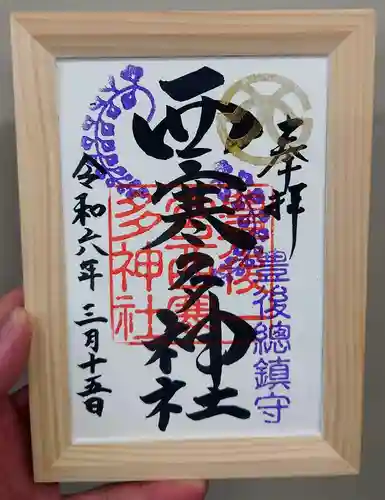 奉拝
豊後總鎮守
西寒多神社
豊後國西寒多神社
令和六年 三月十五日